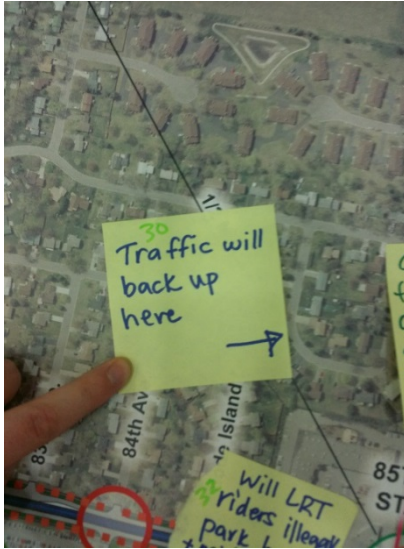 30
Traffic will
back up
here
84th Av
Island
32
Will LRT
riders illegal
park
85
ST